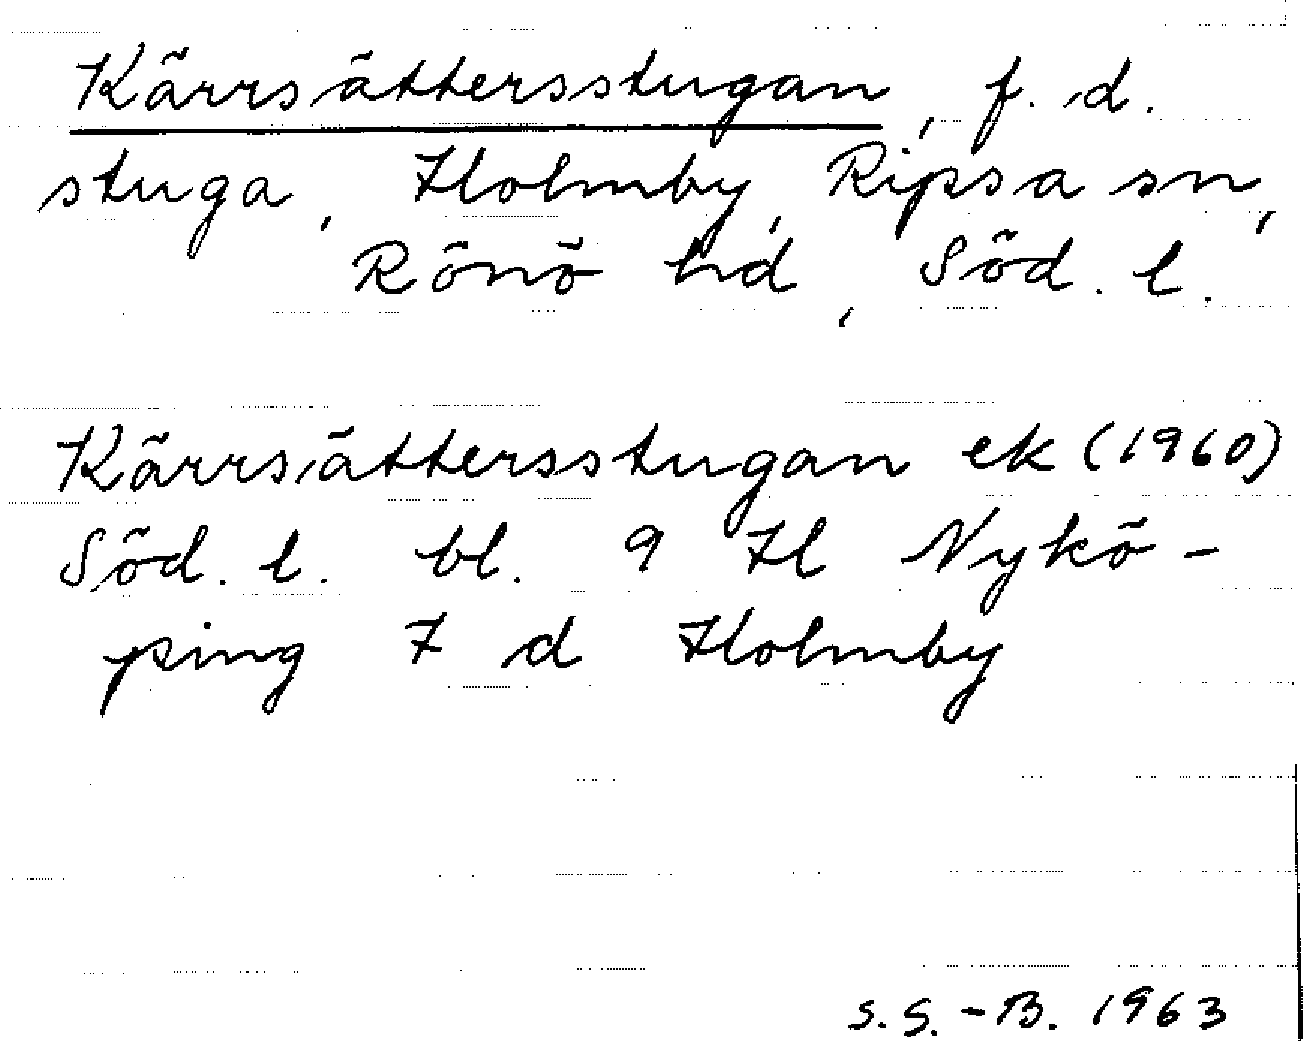 Kärrsättersstugan, f.d.
stuga, Holmby, Ripsa sn,
Rönö hd, Söd. l.
Kärrsättersstugan ek (1960)
Söd. l. bl. 9 H Nykö-
ping 7 d Holmby
S.S.-B. 1963